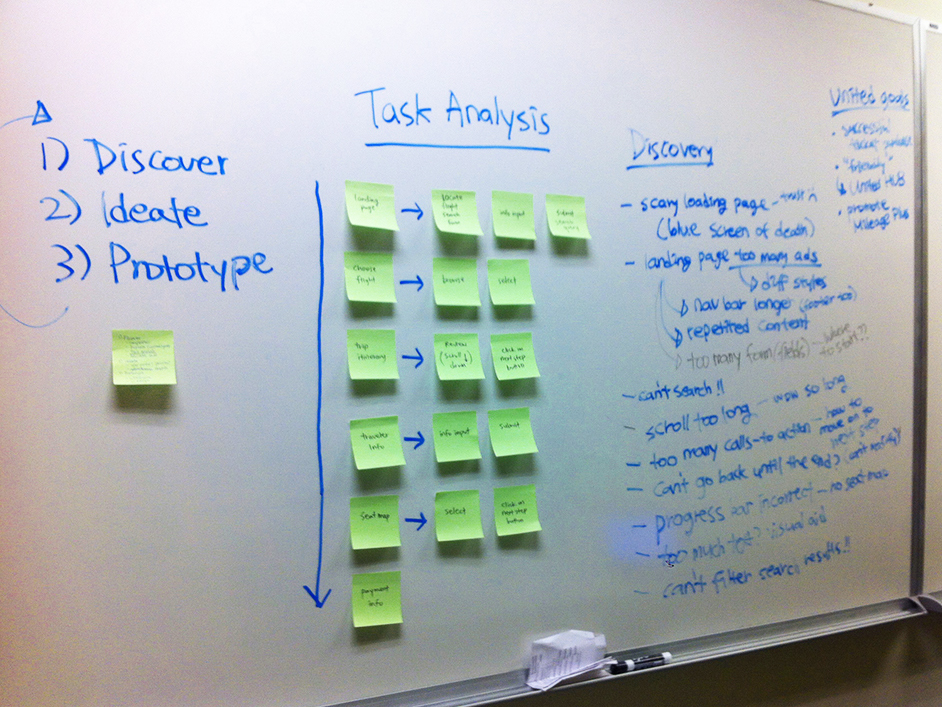 1) Discover
2) Ideate
3) Prototype
Task Analysis
landing
page
locate
flight
search
form
info input
submit
search
query
choose
flight
browse
select
trip
itinerary
review
(scroll
down)
click on
next step
button
traveler
info
info input
submit
seat map
select
click on
next step
button
payment
info
Discovery
- scary loading page -
(blue screen of death)
- landing page too many ads
diff styles
nav bar longer (footer too)
repetited content
too many form (fields) - where
to start??
- can't search!!
- scroll too long - wow so long
- too many calls-to action - how to
move on to
next step
- can't go back until the end?
- progress bar incorrect - no seat map
- too much text? visual aid
- can't filter search results!!
United goals
• successful
ticket purchase
• "friendly"
United HUB
• promote
Mileage Plus